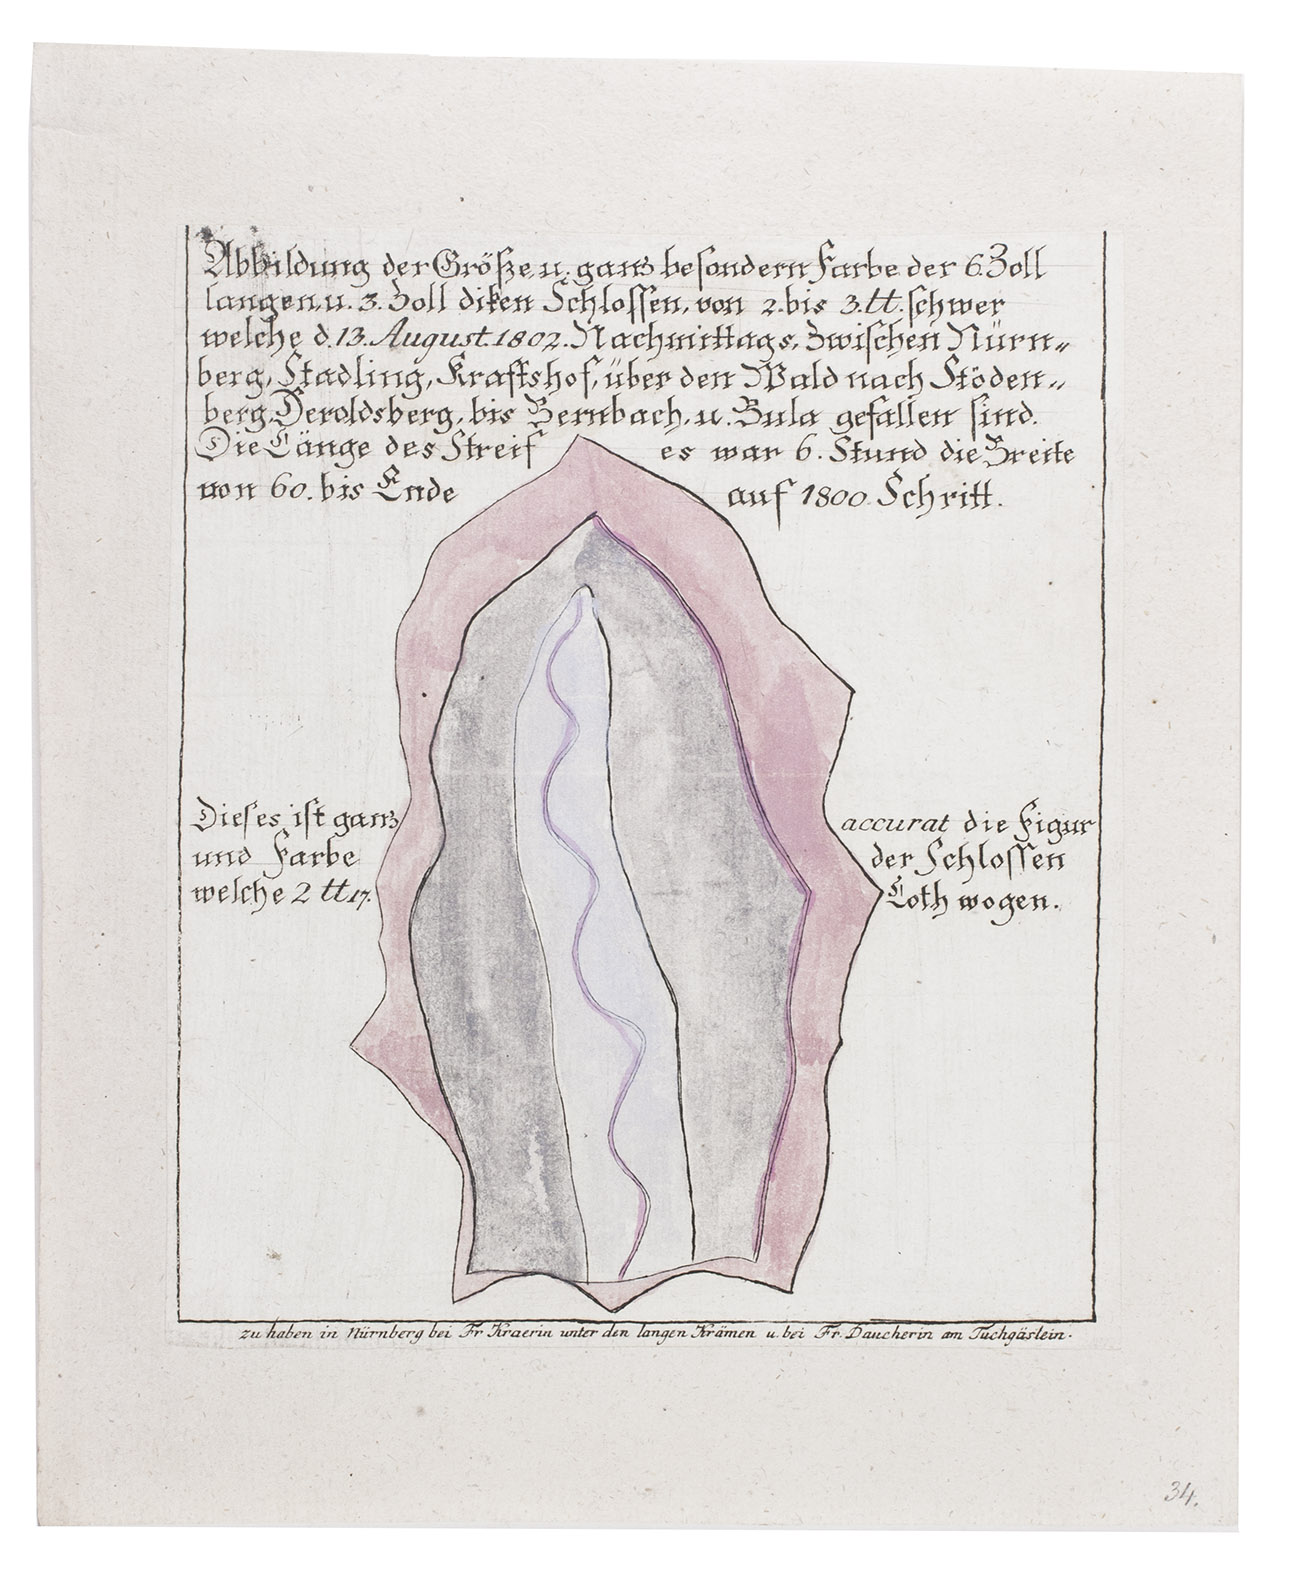 Abbildung der Größe, u. ganz besondern Farbe der 6. Zoll
langen, u. 3. Zoll diken Schlossen, von 2. bis 3. tt. schwer
welche d. 13. August. 1802. Nachmittags, zwischen Nürn„
berg, Stadling, Kraftshof, über den Wald nach Stöden„
berg, Heroldsberg, bis Bernbach, u. Bula gefallen sind.
Die Länge des Streif es war 6. Stund die Breite
von 60. bis Ende auf 1800. Schritt.
Dieses ist ganz accurat die Figur
und Farbe der Schlossen
welche 2 tt 17. Loth wogen.
zu haben in Nürnberg bei Fr Kraerin unter den langen Krämen u. bei Fr. Daucherin am Tuchgäslein.
34.